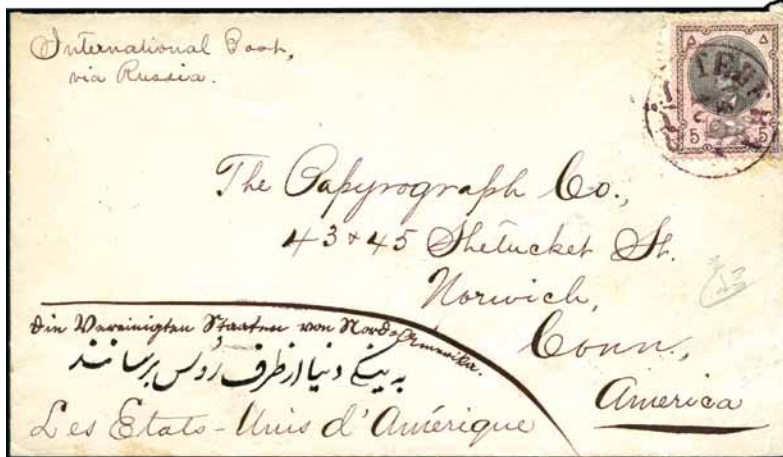 International Post,
via Russia.
5 5
The Papyrograph Co.,
43 & 45 Shetucket St.
Norwich,
Conn.,
America
die Vereinigten Staaten von Nord=Amerika.
به ینگی دنیا از طرف روس برسانند
Les Etats-Unis d'Amérique